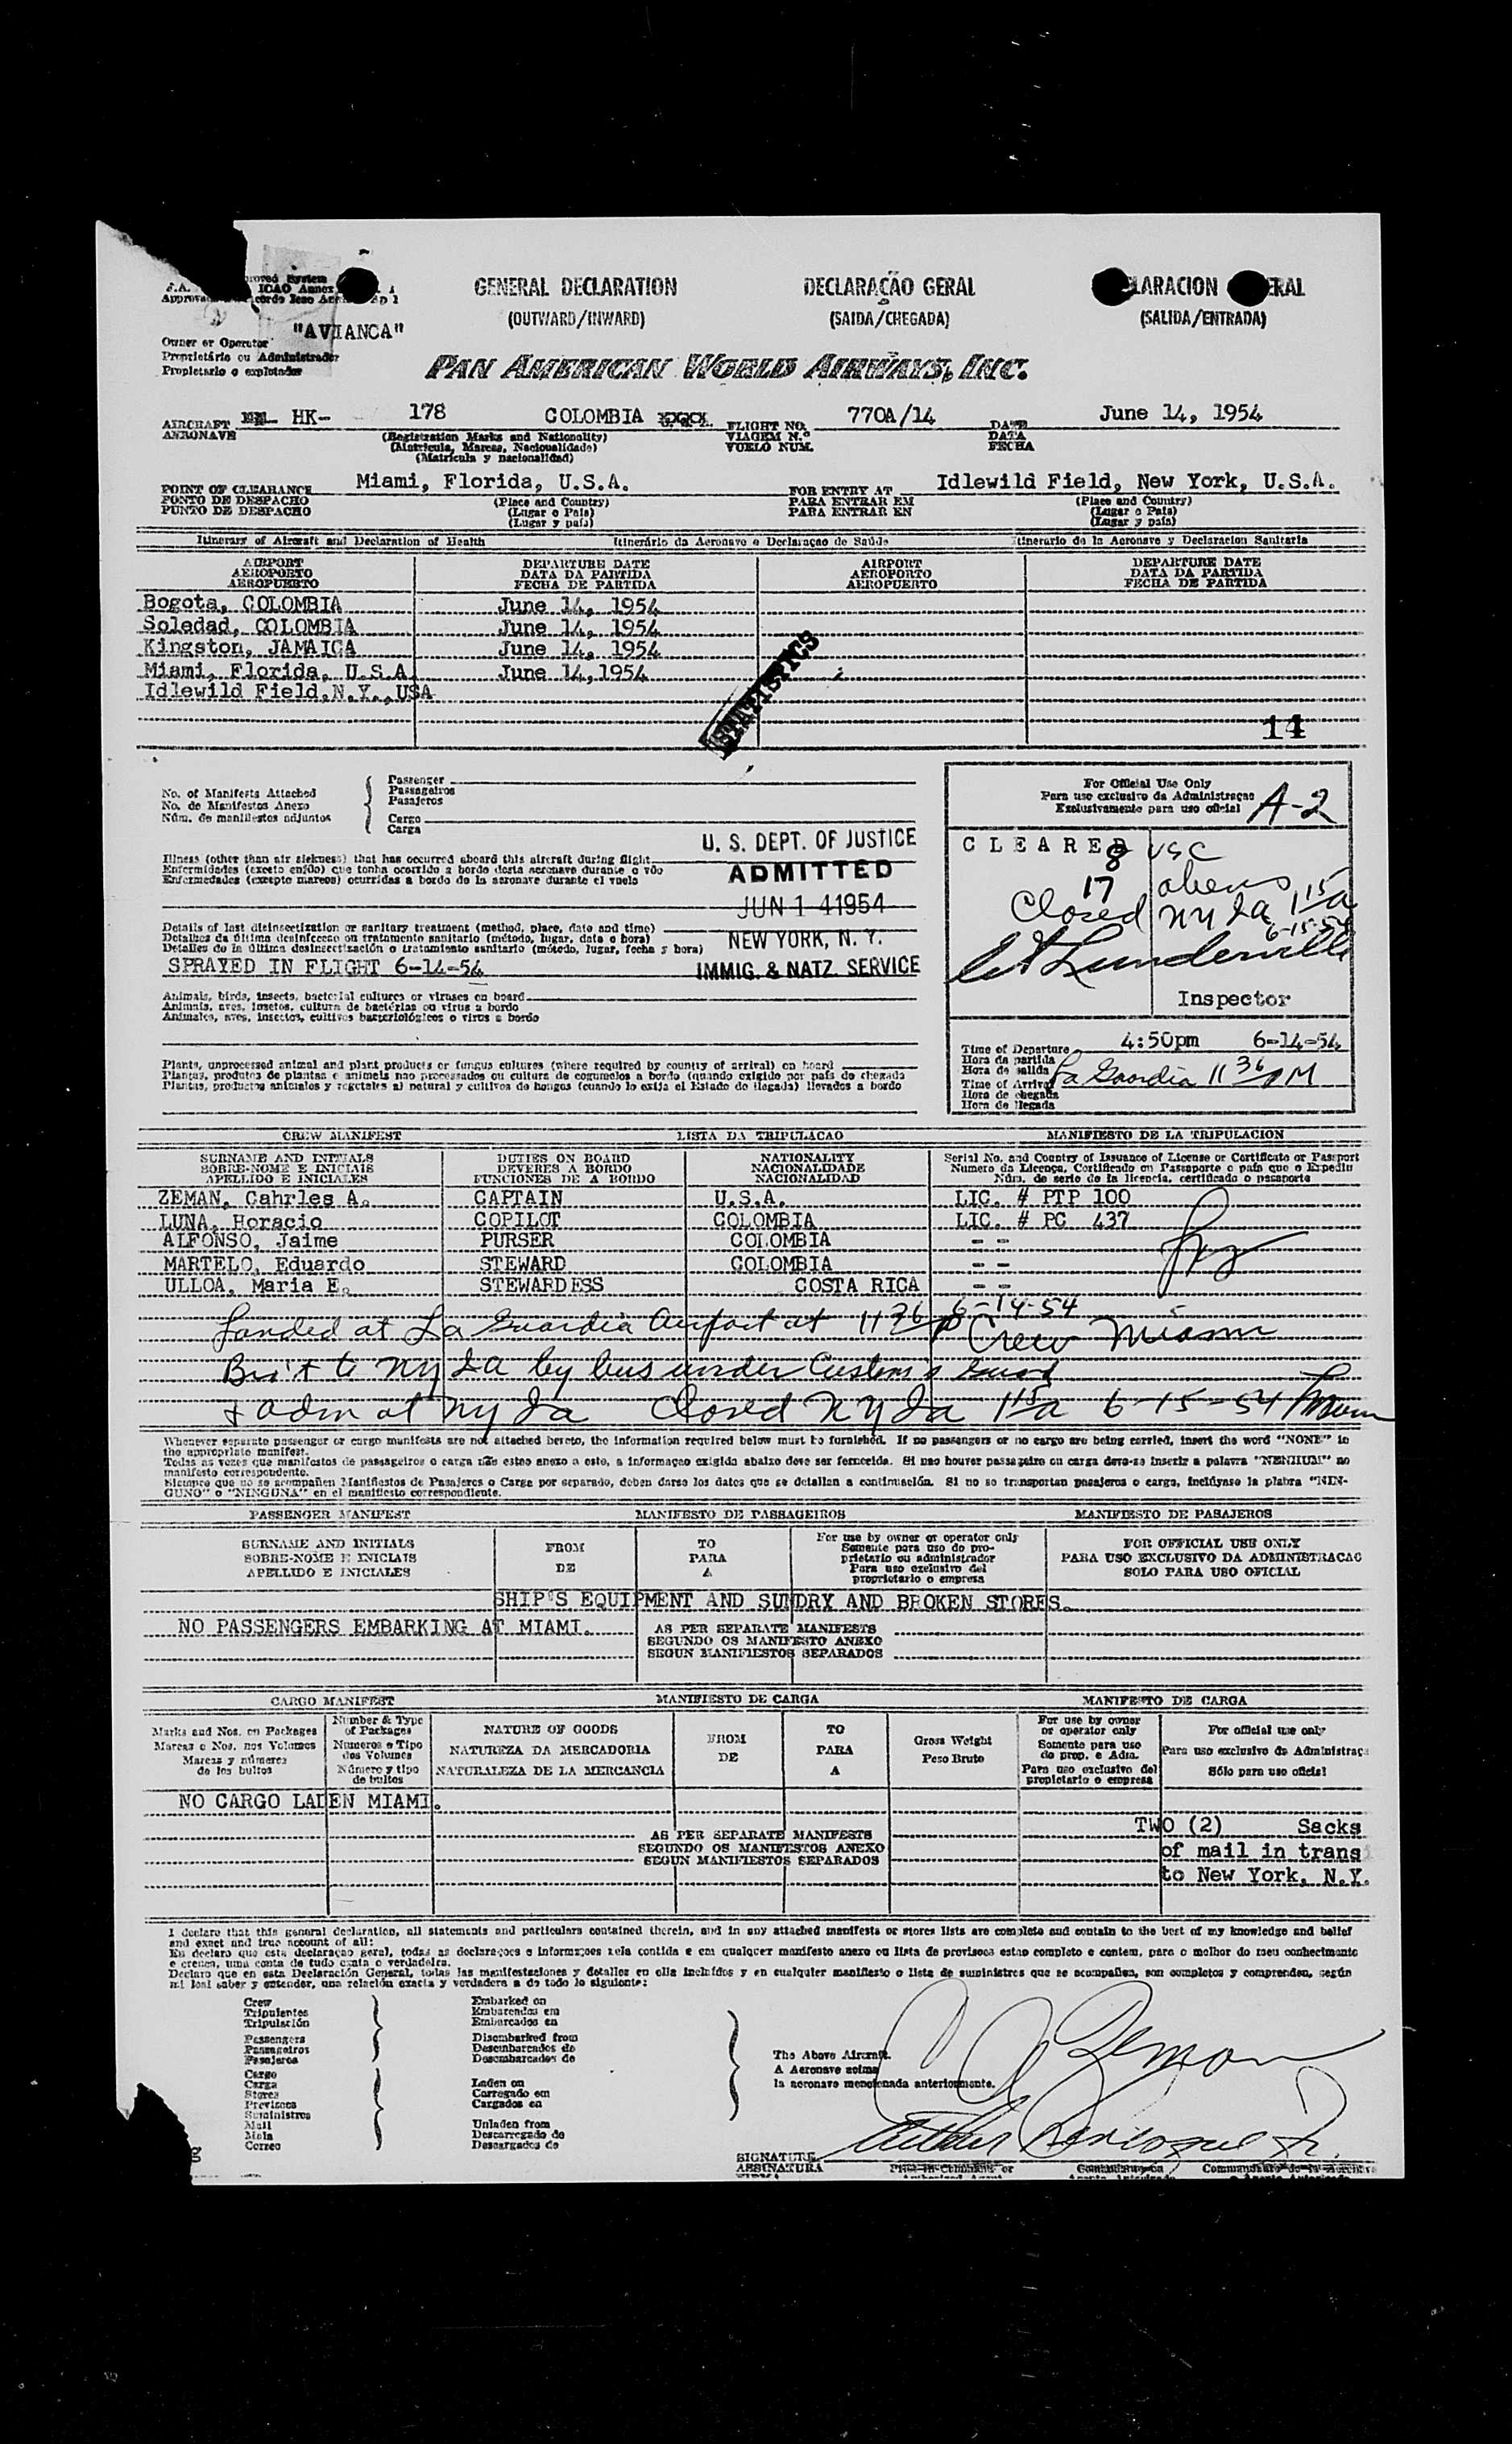 GENERAL DECLARATION
(OUTWARD/INWARD)
DECLARAÇÃO GERAL
(SAIDA/CHEGADA)
LARACION ERAL
(SALIDA/ENTRADA)
roved System
ICAO Annex
"AVIANCA"
Owner or Operator
Proprietário ou Administrador
Propietario o explotador
PAN AMERICAN WORLD AIRWAYS, INC.
AIRCRAFT HK- 178 COLOMBIA FLIGHT NO. 770A/14 DATE June 14, 1954
AERONAVE (Registration Marks and Nationality) VIAGEM N.º DATA
(Matricula, Marcas, Nacionalidade) VUELO NUM. FECHA
(Matricula y nacionalidad)
POINT OF CLEARANCE Miami, Florida, U.S.A. FOR ENTRY AT Idlewild Field, New York, U.S.A.
PONTO DE DESPACHO (Place and Country) PARA ENTRAR EM (Place and Country)
PUNTO DE DESPACHO (Lugar o Pais) PARA ENTRAR EN (Lugar o Pais)
(Lugar y país) (Lugar y país)
Itinerary of Aircraft and Declaration of Health Itinerário da Aeronave e Declaraçao de Saúde Itinerario de la Aeronave y Declaracion Sanitaria
AIRPORT DEPARTURE DATE AIRPORT DEPARTURE DATE
AEROPORTO DATA DA PARTIDA AEROPORTO DATA DA PARTIDA
AEROPUERTO FECHA DE PARTIDA AEROPUERTO FECHA DE PARTIDA
Bogota, COLOMBIA June 14, 1954
Soledad, COLOMBIA June 14, 1954
Kingston, JAMAICA June 14, 1954
Miami, Florida, U.S.A. June 14,1954
Idlewild Field,N.Y.,USA
STATISTICS
14
No. of Manifests Attached
No. de Manifestos Anexo
Núm. de manifiestos adjuntos
Passenger
Passageiros
Pasajeros
Cargo
Carga
For Official Use Only
Para uso exclusivo da Administraçao
Exclusivamente para uso oficial
A-2
U. S. DEPT. OF JUSTICE
ADMITTED
JUN 1 4 1954
NEW YORK, N. Y.
IMMIG. & NATZ. SERVICE
CLEARED
8 USC
17 aliens
Closed NY Ia 1 15 a
6-15-54
Inspector
Illness (other than air sickness) that has occurred aboard this aircraft during flight
Enfermidades (exceto enjôo) que tenha ocorrido a bordo desta aeronave durante o vôo
Enfermedades (excepto mareos) ocurridas a bordo de la aeronave durante el vuelo
Details of last disinsectization or sanitary treatment (method, place, date and time)
Detalhes da última desinfeccao ou tratamento sanitario (método, lugar, data e hora)
Detalles de la última desinsectización o tratamiento sanitario (método, lugar, fecha y hora)
SPRAYED IN FLIGHT 6-14-54
Animals, birds, insects, bacterial cultures or viruses on board
Animais, aves, insetos, cultura de bactérias ou virus a bordo
Animales, aves, insectos, cultivos bacteriológicos o virus a bordo
Plants, unprocessed animal and plant products or fungus cultures (where required by country of arrival) on board
Plantas, produtos de plantas e animais nao processados ou cultura de cogumelos a bordo (quando exigido por país de chegada
Plantas, productos animales y vegetales al natural y cultivos de hongos (cuando lo exija el Estado de llegada) llevados a bordo
Time of Departure 4:50pm 6-14-54
Hora da partida
Hora de salida
Time of Arrival La Guardia 11 36 PM
Hora de chegada
Hora de llegada
CREW MANIFEST LISTA DA TRIPULACAO MANIFIESTO DE LA TRIPULACION
SURNAME AND INITIALS DUTIES ON BOARD NATIONALITY Serial No. and Country of Issuance of License or Certificate or Passport
SOBRE-NOME E INICIAIS DEVERES A BORDO NACIONALIDADE Numero da Licença, Certificado ou Passaporte o país que o Expediu
APELLIDO E INICIALES FUNCIONES DE A BORDO NACIONALIDAD Núm. de serie de la licencia, certificado o pasaporte
ZEMAN, Cahrles A. CAPTAIN U.S.A. LIC. # PTP 100
LUNA, Horacio COPILOT COLOMBIA LIC. # PC 437
ALFONSO, Jaime PURSER COLOMBIA - -
MARTELO, Eduardo STEWARD COLOMBIA - -
ULLOA, Maria E. STEWARDESS COSTA RICA - -
Landed at La Guardia Airport at 11 36 p 6-14-54
Crew Miami
Bro't to NY Ia by bus under Customs Guard
& adm at NY Ia Closed NY Ia 1 15 a 6-15-54
Whenever separate passenger or cargo manifests are not attached hereto, the information required below must be furnished. If no passengers or no cargo are being carried, insert the word "NONE" in
the appropriate manifest.
Todas as vezes que manifestos de passageiros o carga não estao anexo a este, a informaçao exigida abaixo deve ser fornecida. Si nao houver passageiro ou carga deve-se inserir a palavra "NENHUM" no
manifesto correspondente.
Siempre que no se acompañen Manifiestos de Pasajeros o Carga por separado, deben darse los datos que se detallan a continuación. Si no se transportan pasajeros o carga, inclúyase la plabra "NIN-
GUNO" o "NINGUNA" en el manifiesto correspondiente.
PASSENGER MANIFEST MANIFESTO DE PASSAGEIROS MANIFIESTO DE PASAJEROS
SURNAME AND INITIALS FROM TO For use by owner or operator only FOR OFFICIAL USE ONLY
SOBRE-NOME E INICIAIS DE PARA Somente para uso do pro- PARA USO EXCLUSIVO DA ADMINISTRACAO
APELLIDO E INICIALES A prietario ou administrador SOLO PARA USO OFICIAL
Para uso exclusivo del
proprietario o empresa
SHIP'S EQUIPMENT AND SUNDRY AND BROKEN STORES.
NO PASSENGERS EMBARKING AT MIAMI. AS PER SEPARATE MANIFESTS
SEGUNDO OS MANIFESTO ANEXO
SEGUN MANIFIESTOS SEPARADOS
CARGO MANIFEST MANIFIESTO DE CARGA MANIFESTO DE CARGA
Marks and Nos. on Packages Number & Type of Packages NATURE OF GOODS FROM TO Gross Weight For use by owner or operator only For official use only
Marcas e Nos. nos Volumes Numeros e Tipo dos Volumes NATUREZA DA MERCADORIA DE PARA Peso Bruto Somente para uso do prop. e Adm. Para uso exclusivo da Administraç
Marcas y números de los bultos Número y tipo de bultos NATURALEZA DE LA MERCANCIA A Para uso exclusivo del propietario o empresa Sólo para uso oficial
NO CARGO LADEN MIAMI.
AS PER SEPARATE MANIFESTS
SEGUNDO OS MANIFESTOS ANEXO
SEGUN MANIFIESTOS SEPARADOS
TWO (2) Sacks
of mail in trans
to New York, N.Y.
I declare that this general declaration, all statements and particulars contained therein, and in any attached manifests or stores lists are complete and contain to the best of my knowledge and belief
and exact and true account of all:
Eu declaro que esta declaraçao geral, todas as declaraçoes e informaçoes nela contida e em qualquer manifesto anexo ou lista de provisoes estao completo e contem, para o melhor do meu conhecimento
e crenca, uma conta de tudo exata e verdadeira.
Declaro que en esta Declaración General, todas las manifestaciones y detalles en ella incluidos y en cualquier manifiesto o lista de suministros que se acompañen, son completos y comprenden, según
mi leal saber y entender, una relación exacta y verdadera a de todo lo siguiente:
Crew
Tripulentes
Tripulación
Passengers
Passageiros
Pasajeros
Cargo
Carga
Stores
Previsoes
Suministros
Mail
Mala
Correo
Embarked on
Embarcados em
Embarcados en
Disembarked from
Desembarcados de
Desembarcados de
Laden on
Carregado em
Cargados en
Unladen from
Descarregado de
Descargados de
The Above Aircraft.
A Aeronave acima
la aeronave mencionada anteriormente.
C A Zeman
SIGNATURE
ASSINATURA